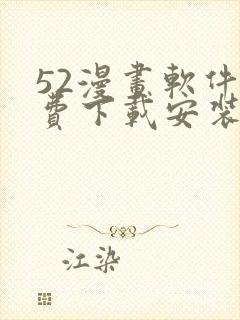 52漫畫軟件
費下載安裝
江染